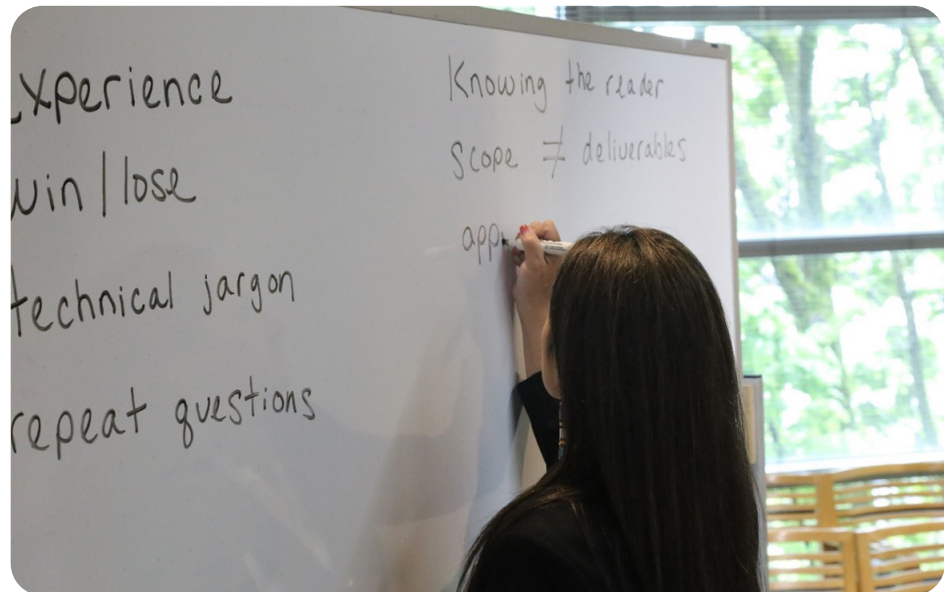 xperience
win/lose
technical jargon
repeat questions
Knowing the reader
Scope ≠ deliverables
app